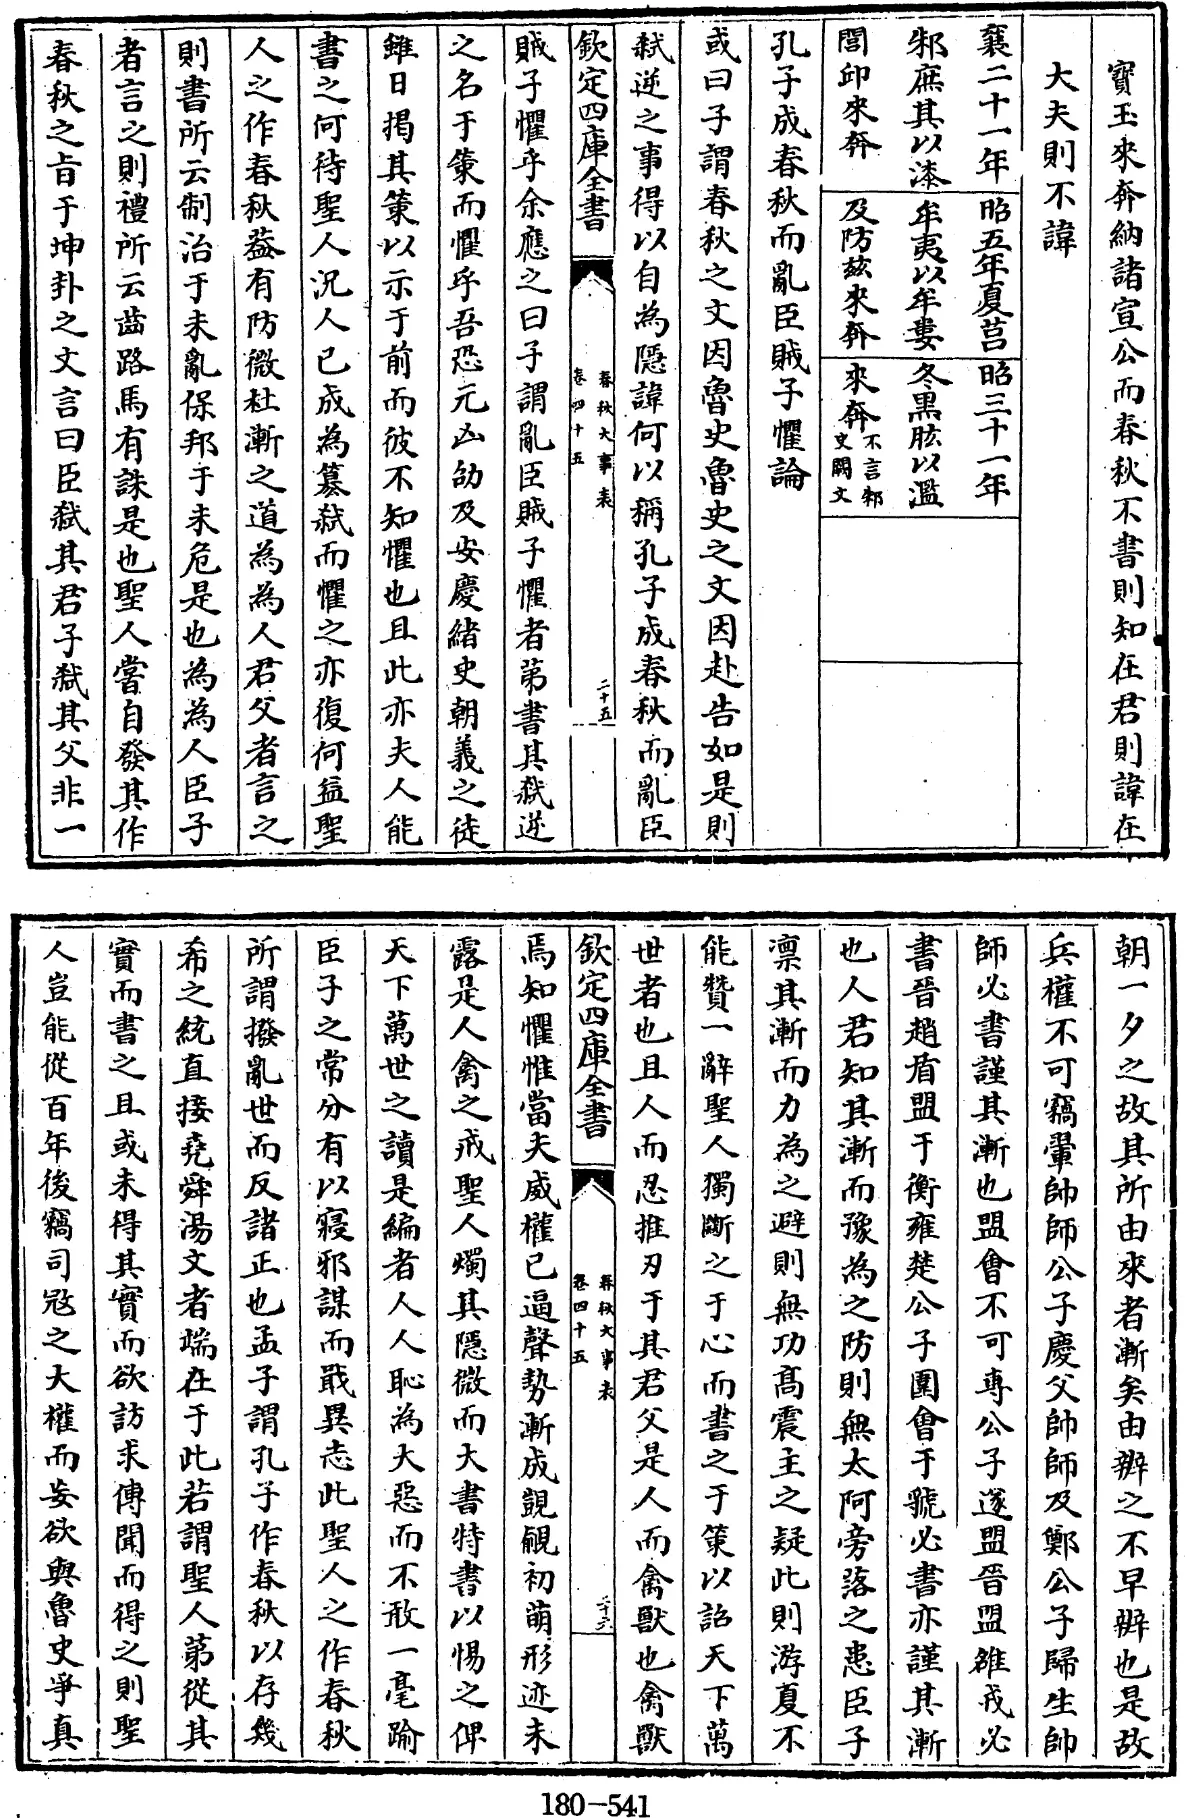 寶玉來奔納諸宣公而春秋不書則知在君則諱在
大夫則不諱
襄二十一年
邾庶其以漆
閭卭來奔
昭五年夏莒
牟夷以牟婁
及防兹來奔
昭三十一年
冬黒肱以濫
來奔不言邾史闕文
孔子成春秋而亂臣賊子懼論
或曰子謂春秋之文因魯史魯史之文因赴告如是則
弑逆之事得以自為隱諱何以稱孔子成春秋而亂臣
欽定四庫全書
春秋大事表
卷四十五
二十五
賊子懼乎余應之曰子謂亂臣賊子懼者第書其弑逆
之名于策而懼乎吾恐元凶劭及安慶緒史朝義之徒
雖日揭其策以示于前而彼不知懼也且此亦夫人能
書之何待聖人況人已成為簒弑而懼之亦復何益聖
人之作春秋葢有防微杜漸之道為為人君父者言之
則書所云制治于未亂保邦于未危是也為為人臣子
者言之則禮所云齒路馬有誅是也聖人嘗自發其作
春秋之旨于坤卦之文言曰臣弑其君子弑其父非一
朝一夕之故其所由來者漸矣由辨之不早辨也是故
兵權不可竊翬帥師公子慶父帥師及鄭公子歸生帥
師必書謹其漸也盟會不可專公子遂盟晉盟雒戎必
書晉趙盾盟于衡雍楚公子圍會于虢必書亦謹其漸
也人君知其漸而豫為之防則無太阿旁落之患臣子
凛其漸而力為之避則無功髙震主之疑此則游夏不
能贊一辭聖人獨斷之于心而書之于策以詔天下萬
世者也且人而忍推刃于其君父是人而禽獸也禽獸
欽定四庫全書
春秋大事表
卷四十五
二十六
焉知懼惟當夫威權已逼聲勢漸成覬覦初萌形迹未
露是人禽之戒聖人燭其隱微而大書特書以惕之俾
天下萬世之讀是編者人人恥為大惡而不敢一毫踰
臣子之常分有以寢邪謀而戢異志此聖人之作春秋
所謂撥亂世而反諸正也孟子謂孔子作春秋以存幾
希之統直接堯舜湯文者端在于此若謂聖人第從其
實而書之且或未得其實而欲訪求傳聞而得之則聖
人豈能從百年後竊司冦之大權而妄欲與魯史爭真
180-541